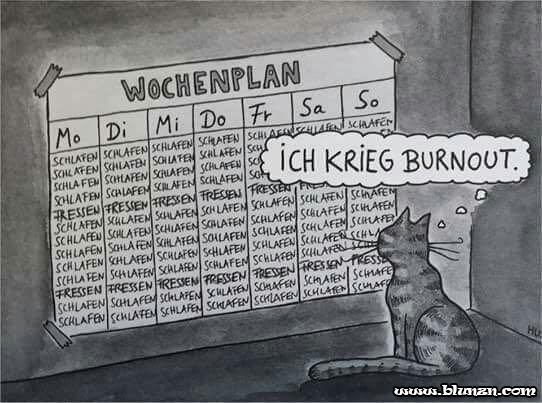 WOCHENPLAN
Mo Di Mi Do Fr Sa So
SCHLAFEN SCHLAFEN SCHLAFEN SCHLAFEN SCHLAFEN SCHLAFEN SCHLAFEN
SCHLAFEN SCHLAFEN SCHLAFEN SCHLAFEN
SCHLAFEN SCHLAFEN SCHLAFEN SCHLAFEN
SCHLAFEN SCHLAFEN SCHLAFEN SCHLAFEN
FRESSEN FRESSEN FRESSEN FRESSEN FRESSEN FRESSEN FRESSEN
SCHLAFEN SCHLAFEN SCHLAFEN SCHLAFEN SCHLAFEN SCHLAFEN SCHLAFEN
SCHLAFEN SCHLAFEN SCHLAFEN SCHLAFEN SCHLAFEN SCHLAFEN SCHLAFEN
SCHLAFEN SCHLAFEN SCHLAFEN SCHLAFEN SCHLAFEN SCHLAFEN SCHLAFEN
SCHLAFEN SCHLAFEN SCHLAFEN SCHLAFEN SCHLAFEN SCHLAFEN
SCHLAFEN SCHLAFEN SCHLAFEN SCHLAFEN SCHLAFEN SCHLAFEN
FRESSEN FRESSEN FRESSEN FRESSEN FRESSEN FRESSEN FRESSE
SCHLAFEN SCHLAFEN SCHLAFEN SCHLAFEN SCHLAFEN SCHLAFEN SCHLAFE
SCHLAFEN SCHLAFEN SCHLAFEN SCHLAFEN SCHLAFEN SCHLAFEN SCHLAF
ICH KRIEG BURNOUT.
www.blunzn.com